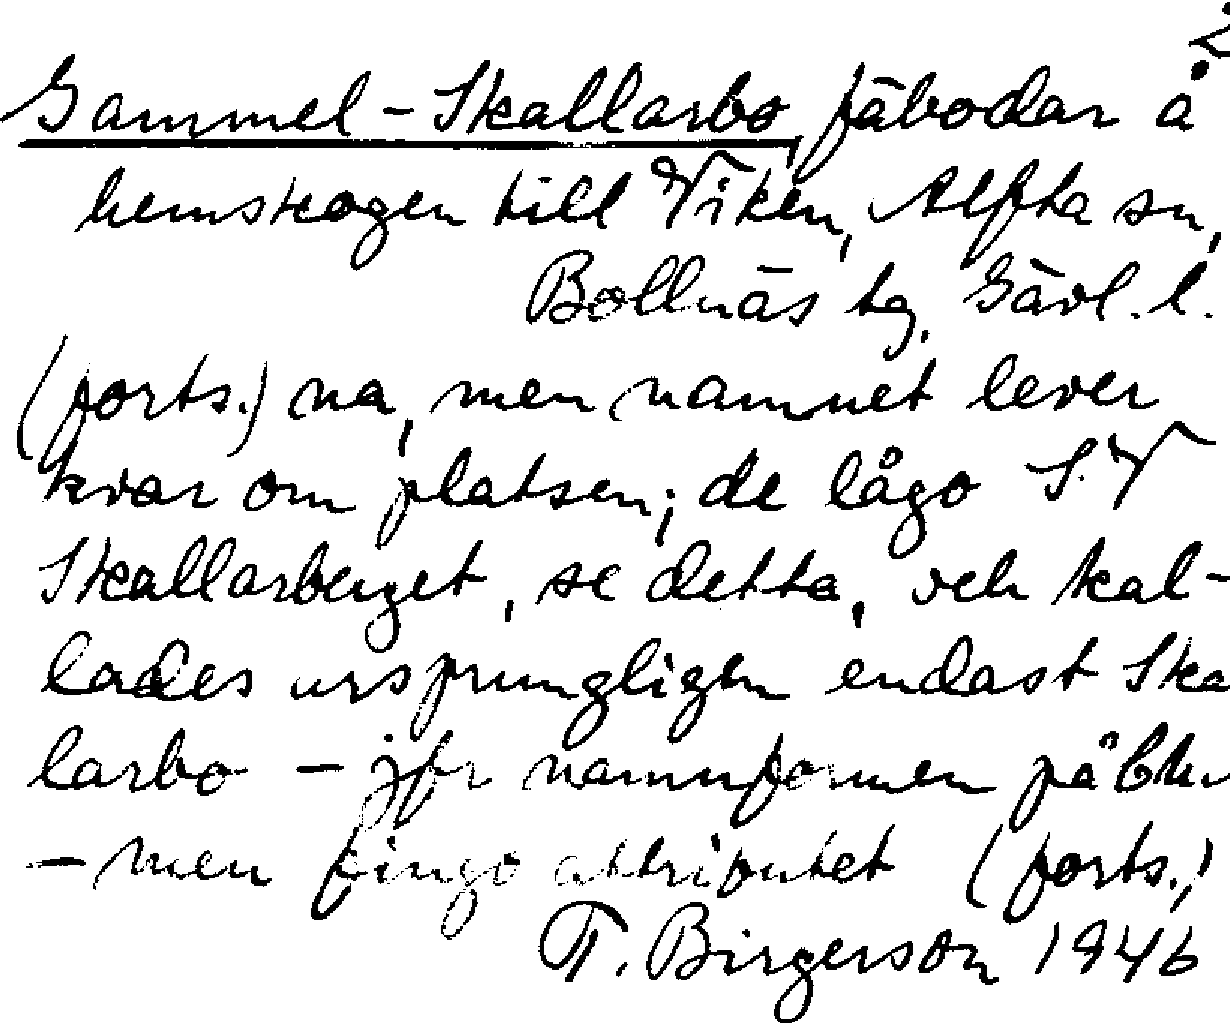 2
Gammel-Skallarbo, fäbodar å
hemskogen till Viken, Alfta sn,
Bollnäs tg, Gävl. l.
(forts.) na, men namnet lever
kvar om platsen; de lågo S.V
Skallarberget, se detta, och kal-
lades ursprungligen endast Ska
larbo – jfr namnformen på bl.
– men fingo attributet (forts.)
T. Birgerson 1946